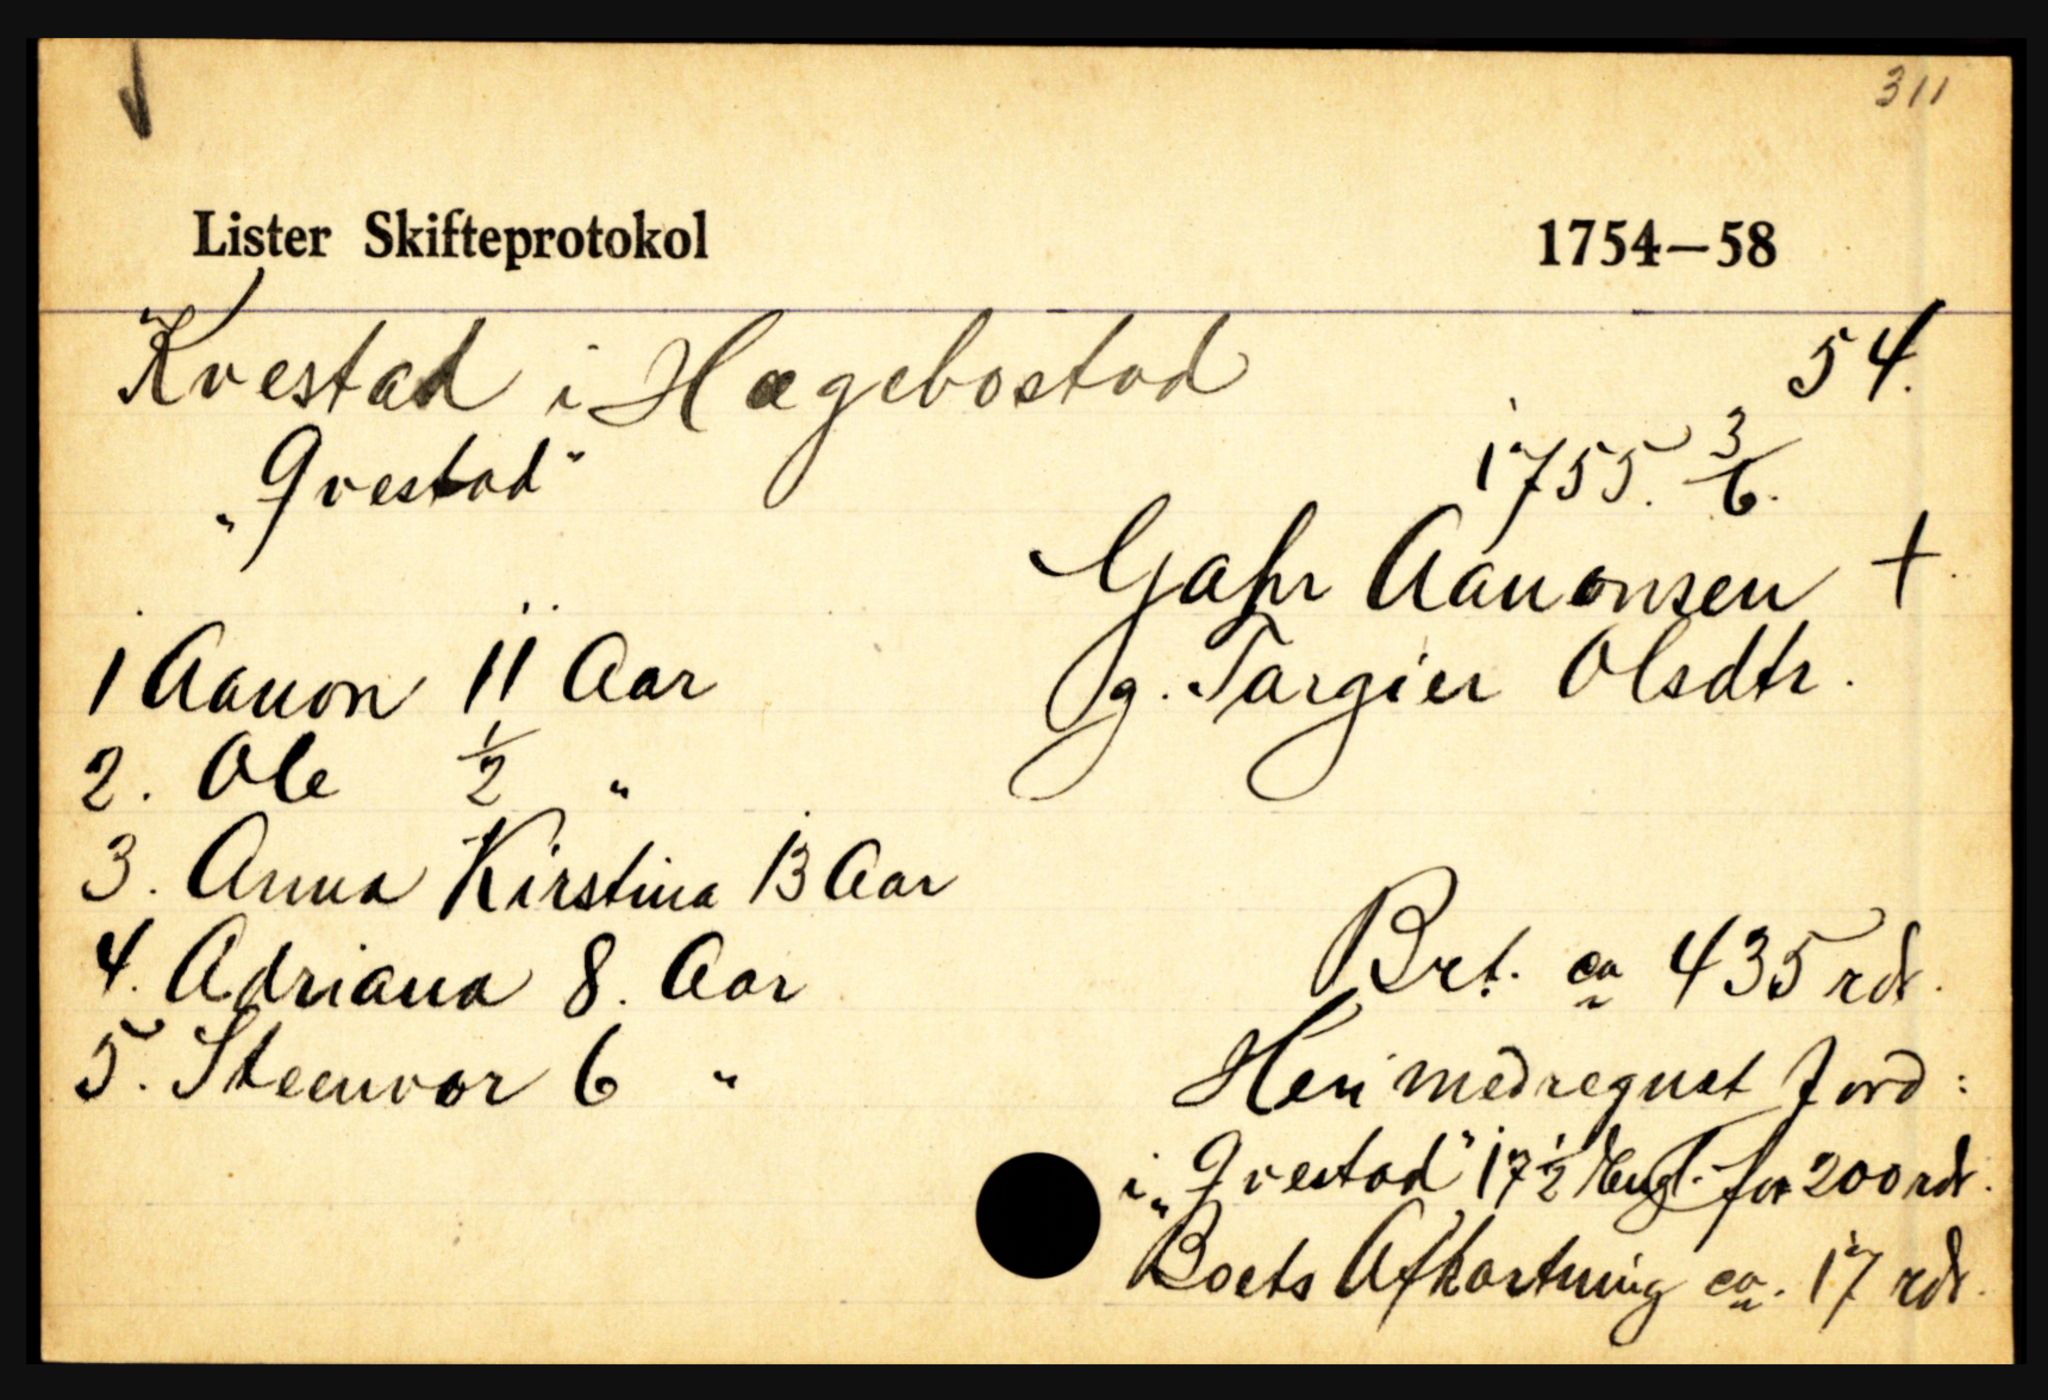 311
Lister Skifteprotokol 1754—58
Kvestad i Hægebostad 54.
„Qvestad" 1755. 3/6.
Gahr Aanonsen †
g. Targier Olsdtr.
1 Aanon 11 Aar
2. Ole 1/2 "
3. Anna Kirstina 13 Aar
4. Adriana 8. Aar
5. Steenvor 6 "
Brt. ca 435 rdr.
Heri medregnet Jord:
i „Qvestad" 17 1/2 Engl. for 200 rdr.
Boets Afkortning ca. 17 rdr.